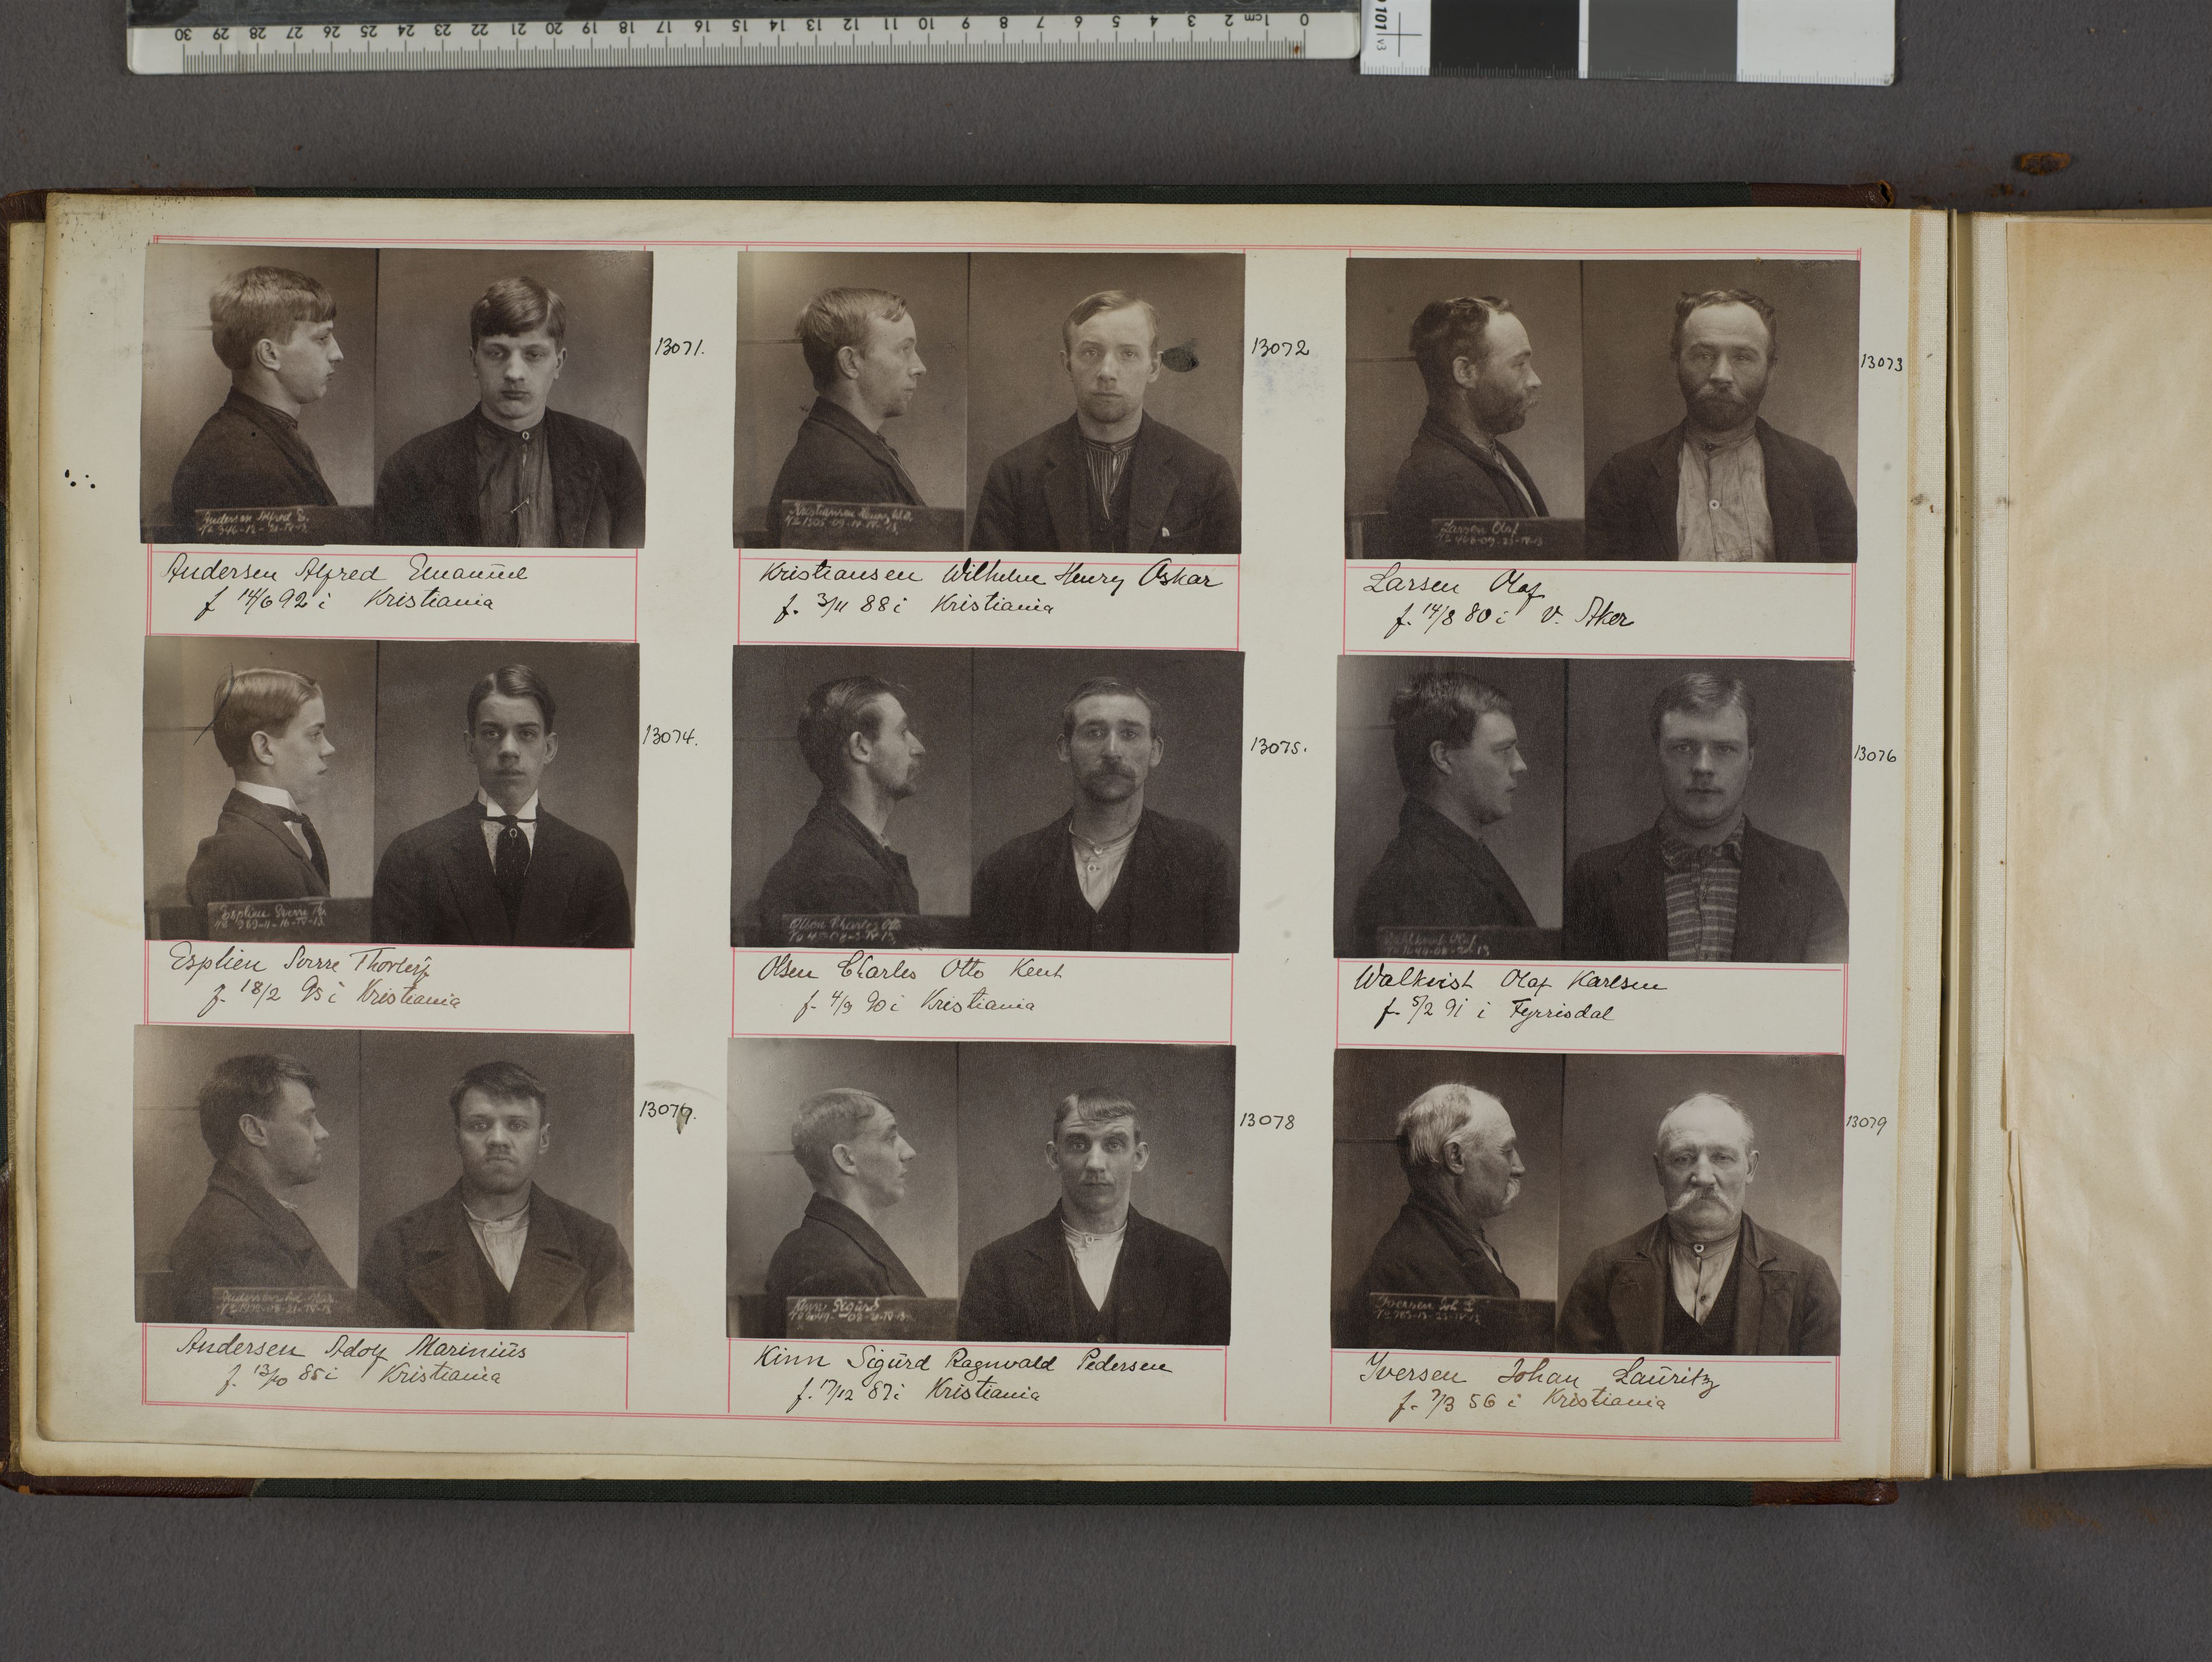 30 29 28 27 26 25 24 23 22 21 20 19 18 17 16 15 14 13 12 11 10 9 8 7 6 5 4 3 2 1cm 0
101 v3
13071.
Andersen Alfred E.
Andersen Alfred Emanuel
f 14/6 92 i Kristiania
13072
Kristiansen Henry W.O.
Kristiansen Wilhelm Henry Oskar
f. 3/11 88 i Kristiania
13073
Larsen Olaf
Larsen Olaf
f. 14/8 80 i V. Aker
13074.
Esplien Sverre Th.
Esplien Sverre Thorleif
f. 18/2 95 i Kristiania
13075.
Olsen Charles Otto
Olsen Charles Otto Kent
f. 4/9 90 i Kristiania
13076
Walkvist Olaf Karlsen
f. 5/2 91 i Fyrrisdal
13077.
Andersen Ad. Mar.
Andersen Adolf Marinius
f. 13/10 85 i Kristiania
13078
Kinn Sigurd
Kinn Sigurd Ragnvald Pedersen
f. 17/12 87 i Kristiania
13079
Iversen Joh. L
Iversen Johan Lauritz
f. 7/3 56 i Kristiania